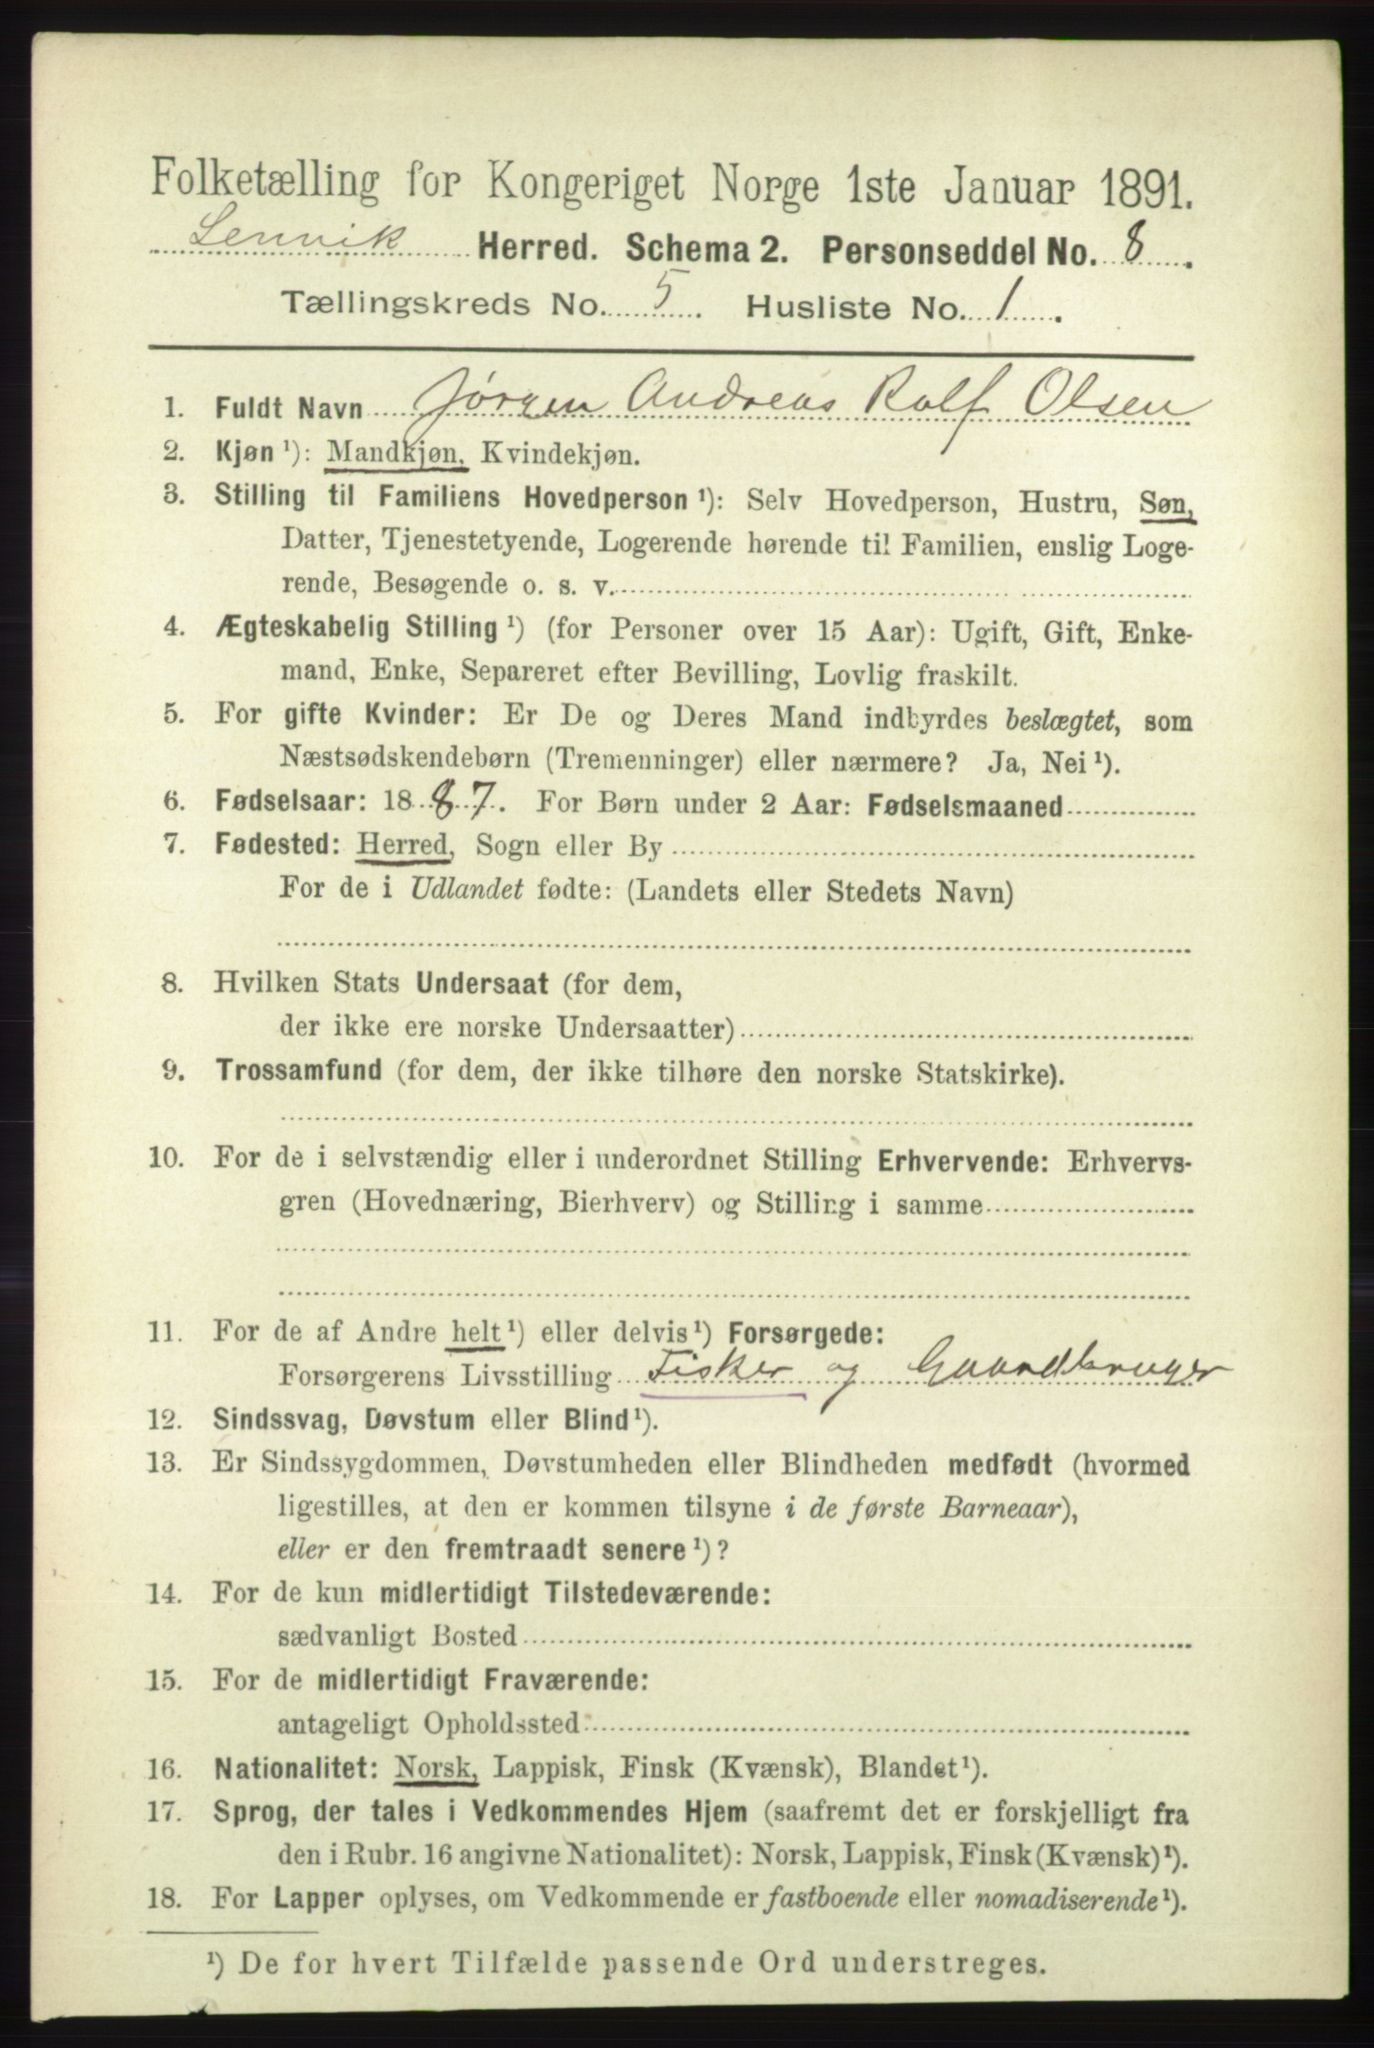 Folketælling for Kongeriget Norge 1ste Januar 1891.
Lenvik Herred. Schema 2. Personseddel No. 8.
Tællingskreds No. 5. Husliste No. 1.
1. Fuldt Navn Jørgen Andreas Rolf Olsen
2. Kjøn ¹): Mandkjøn, Kvindekjøn.
3. Stilling til Familiens Hovedperson ¹): Selv Hovedperson, Hustru, Søn,
Datter, Tjenestetyende, Logerende hørende til Familien, enslig Loge-
rende, Besøgende o. s. v.
4. Ægteskabelig Stilling ¹) (for Personer over 15 Aar): Ugift, Gift, Enke-
mand, Enke, Separeret efter Bevilling, Lovlig fraskilt.
5. For gifte Kvinder: Er De og Deres Mand indbyrdes beslægtet, som
Næstsødskendebørn (Tremenninger) eller nærmere? Ja, Nei ¹).
6. Fødselsaar: 1887. For Børn under 2 Aar: Fødselsmaaned
7. Fødested: Herred, Sogn eller By
For de i Udlandet fødte: (Landets eller Stedets Navn)
8. Hvilken Stats Undersaat (for dem,
der ikke ere norske Undersaatter)
9. Trossamfund (for dem, der ikke tilhøre den norske Statskirke).
10. For de i selvstændig eller i underordnet Stilling Erhvervende: Erhvervs-
gren (Hovednæring, Bierhverv) og Stilling i samme
11. For de af Andre helt ¹) eller delvis ¹) Forsørgede:
Forsørgerens Livsstilling Fisker og Gaardbruger
12. Sindssvag, Døvstum eller Blind ¹).
13. Er Sindssygdommen, Døvstumheden eller Blindheden medfødt (hvormed
ligestilles, at den er kommen tilsyne i de første Barneaar),
eller er den fremtraadt senere ¹)?
14. For de kun midlertidigt Tilstedeværende:
sædvanligt Bosted
15. For de midlertidigt Fraværende:
antageligt Opholdssted
16. Nationalitet: Norsk, Lappisk, Finsk (Kvænsk), Blandet ¹).
17. Sprog, der tales i Vedkommendes Hjem (saafremt det er forskjelligt fra
den i Rubr. 16 angivne Nationalitet): Norsk, Lappisk, Finsk (Kvænsk) ¹).
18. For Lapper oplyses, om Vedkommende er fastboende eller nomadiserende ¹).
¹) De for hvert Tilfælde passende Ord understreges.